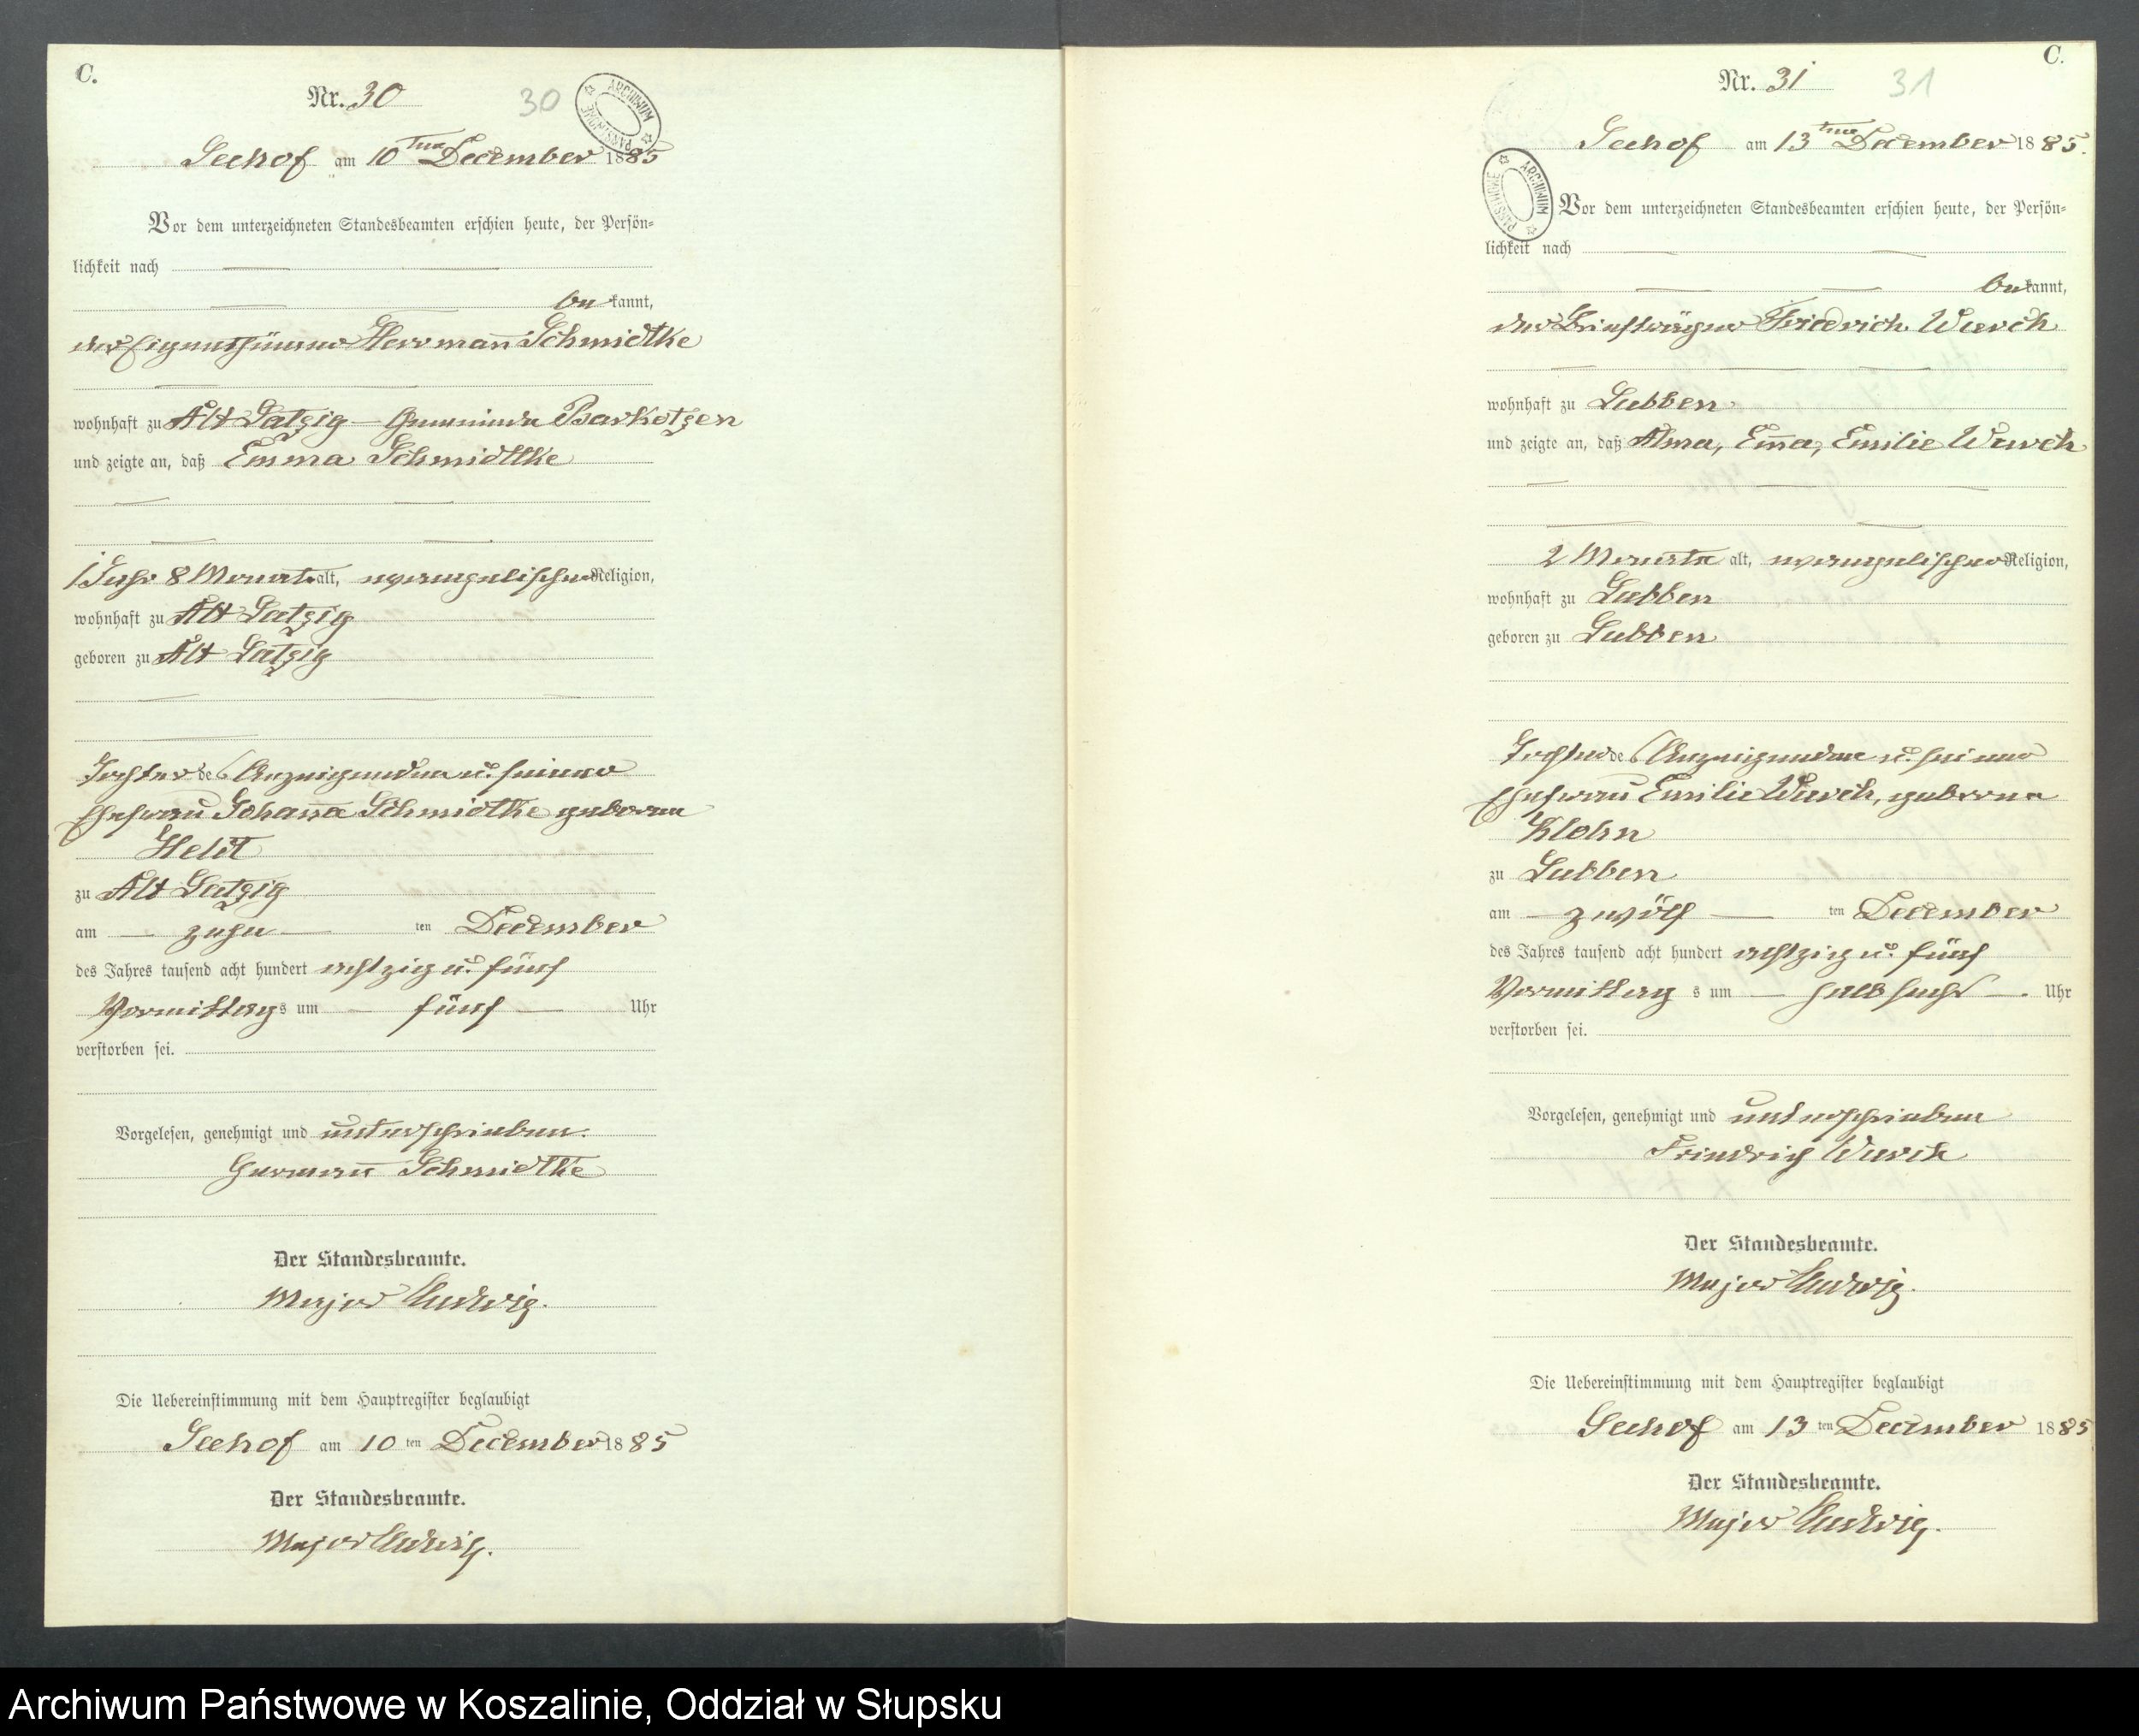 C.
Nr. 30
30
ARCHIWUM PAŃSTWOWE
Seehof am 10ten December 1885
Vor dem unterzeichneten Standesbeamten erschien heute, der Persön-
lichkeit nach
bekannt,
der Eigenthümer Herrmann Schmidtke
wohnhaft zu Alt Satzig – Gemeinde Barkotzen
und zeigte an, daß Emma Schmidtke
1 Jahr 8 Monate alt, evangelischer Religion,
wohnhaft zu Alt Satzig
geboren zu Alt Satzig
Tochter des Anzeigenden u. seiner
Ehefrau Johanna Schmidtke geborene
zu Alt Satzig
am zehn ten December
des Jahres tausend acht hundert achtzig u. fünf
Vormittags um fünf Uhr
verstorben sei.
Vorgelesen, genehmigt und unterschrieben.
Hermann Schmidtke
Der Standesbeamte.
Major Ludwig.
Die Uebereinstimmung mit dem Hauptregister beglaubigt
Seehof am 10 ten December 1885
Der Standesbeamte.
Major Ludwig.
C.
Nr. 31
31
Seehof am 13ten December 1885.
ARCHIWUM PAŃSTWOWE
Vor dem unterzeichneten Standesbeamten erschien heute, der Persön-
lichkeit nach
bekannt,
der Briefträger Friedrich Wurch
wohnhaft zu Lubben
und zeigte an, daß Alma, Emma, Emilie Wurch
2 Monate alt, evangelischer Religion,
wohnhaft zu Lubben
geboren zu Lubben
Tochter des Anzeigenden u. seiner
Ehefrau Emilie Wurch, geborene
Klohn
zu Lubben
am zwölf ten December
des Jahres tausend acht hundert achtzig u. fünf
Vormittag s um halb sechs Uhr
verstorben sei.
Vorgelesen, genehmigt und unterschrieben
Friedrich Wurch
Der Standesbeamte.
Major Ludwig.
Die Uebereinstimmung mit dem Hauptregister beglaubigt
Seehof am 13 ten December 1885
Der Standesbeamte.
Major Ludwig.
Archiwum Państwowe w Koszalinie, Oddział w Słupsku